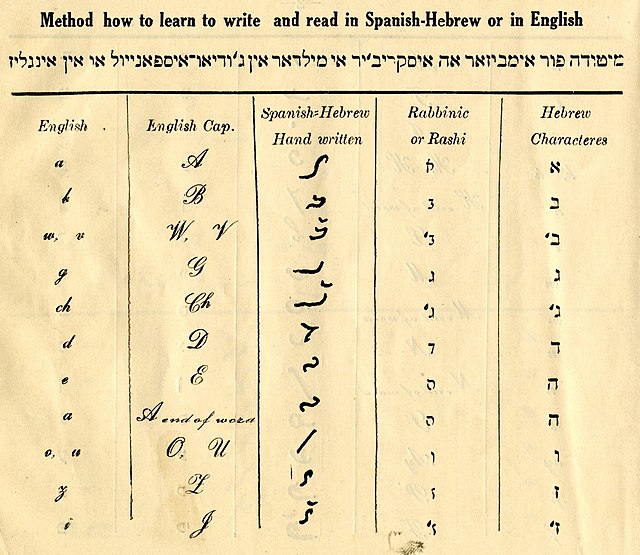 Method how to learn to write and read in Spanish-Hebrew or in English
מיטודה פור אימביזאר אה איסקריב'יר אי מילדאר אין ג'ודיאו־איספאנייול או אין אינגליז
English English Cap. Spanish-Hebrew Hand written Rabbinic or Rashi Hebrew Characteres
a A א א
b B ב ב
w, v W, V ב' ב'
g G ג ג
ch Ch ג' ג'
d D ד ד
e E ה ה
a A end of word ה ה
o, u O, U ו ו
z Z ז ז
i J ז' ז'